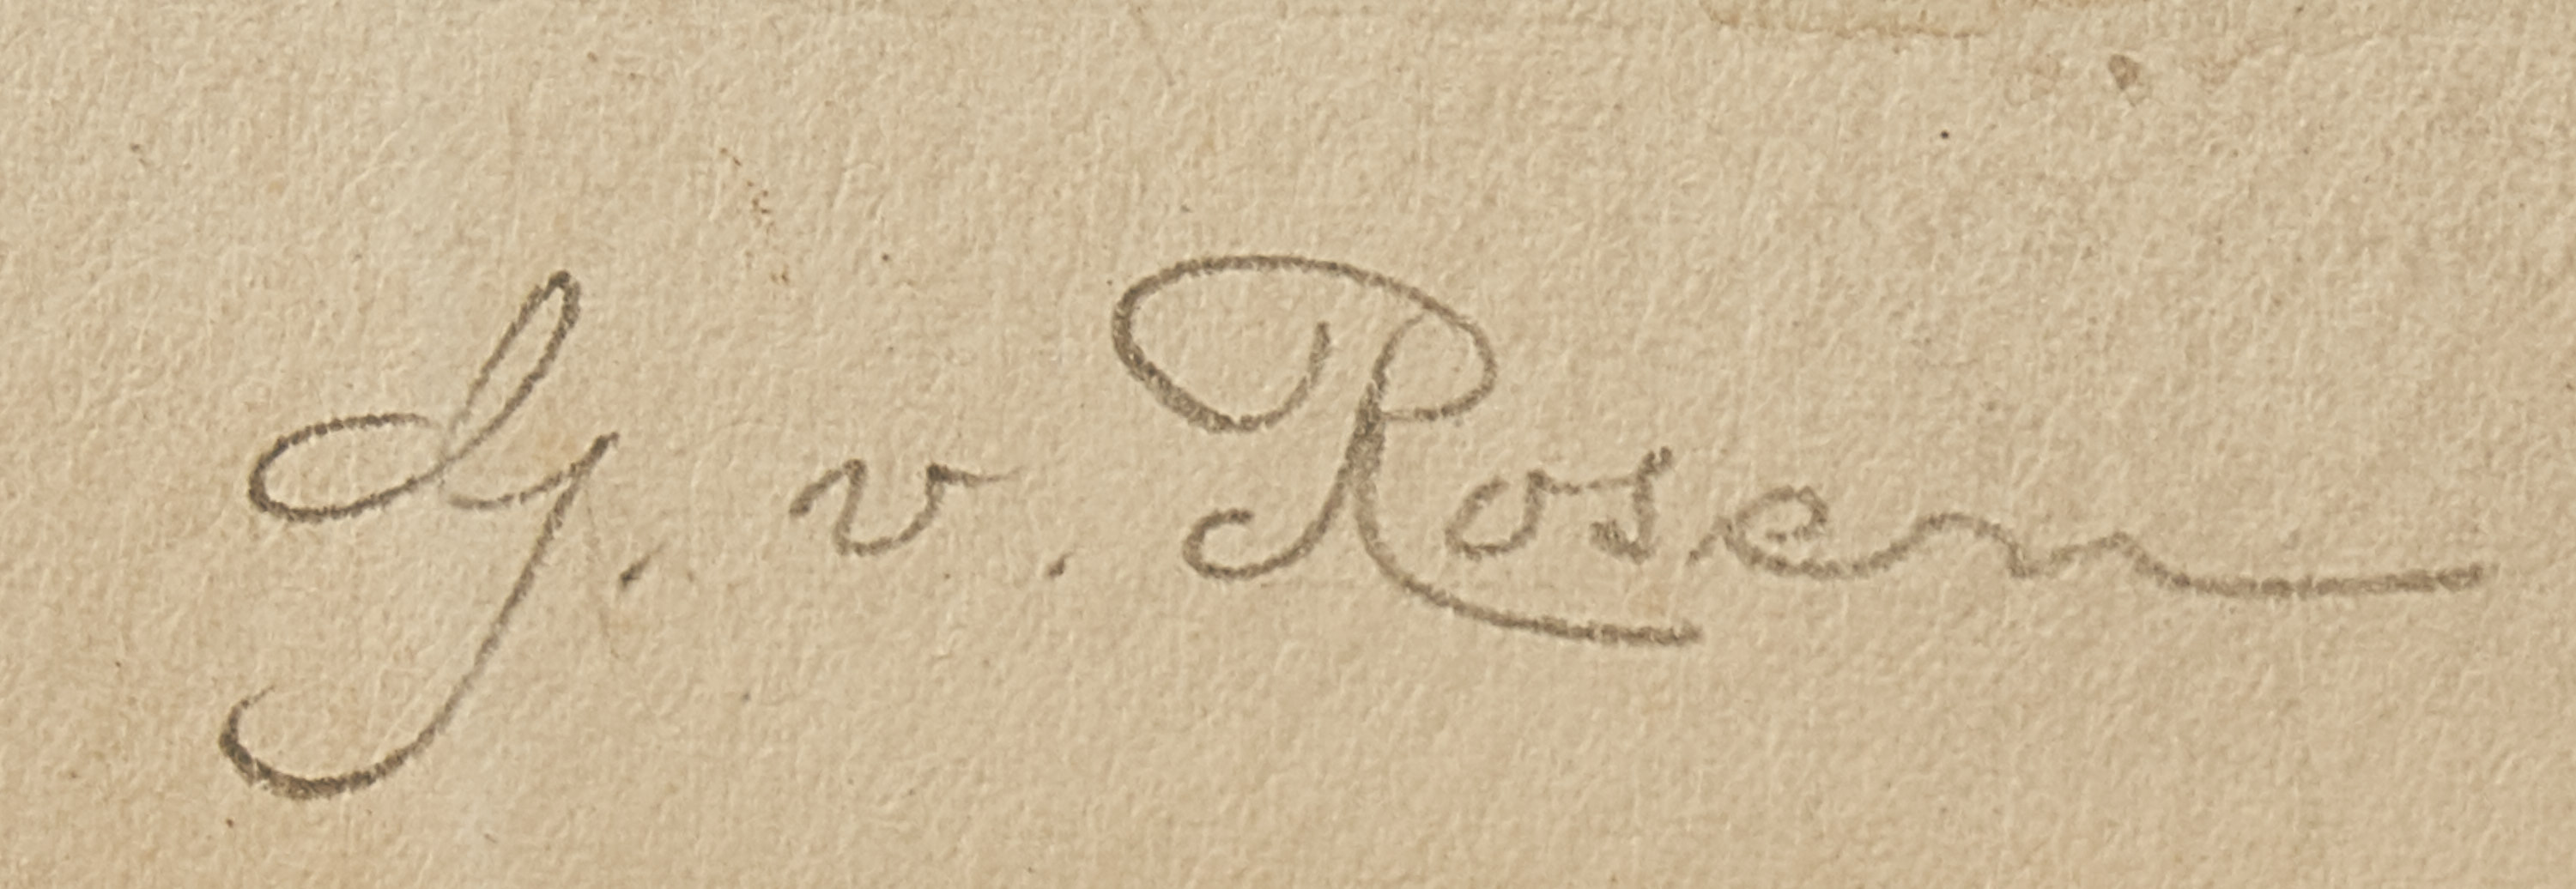 G. v. Rosen